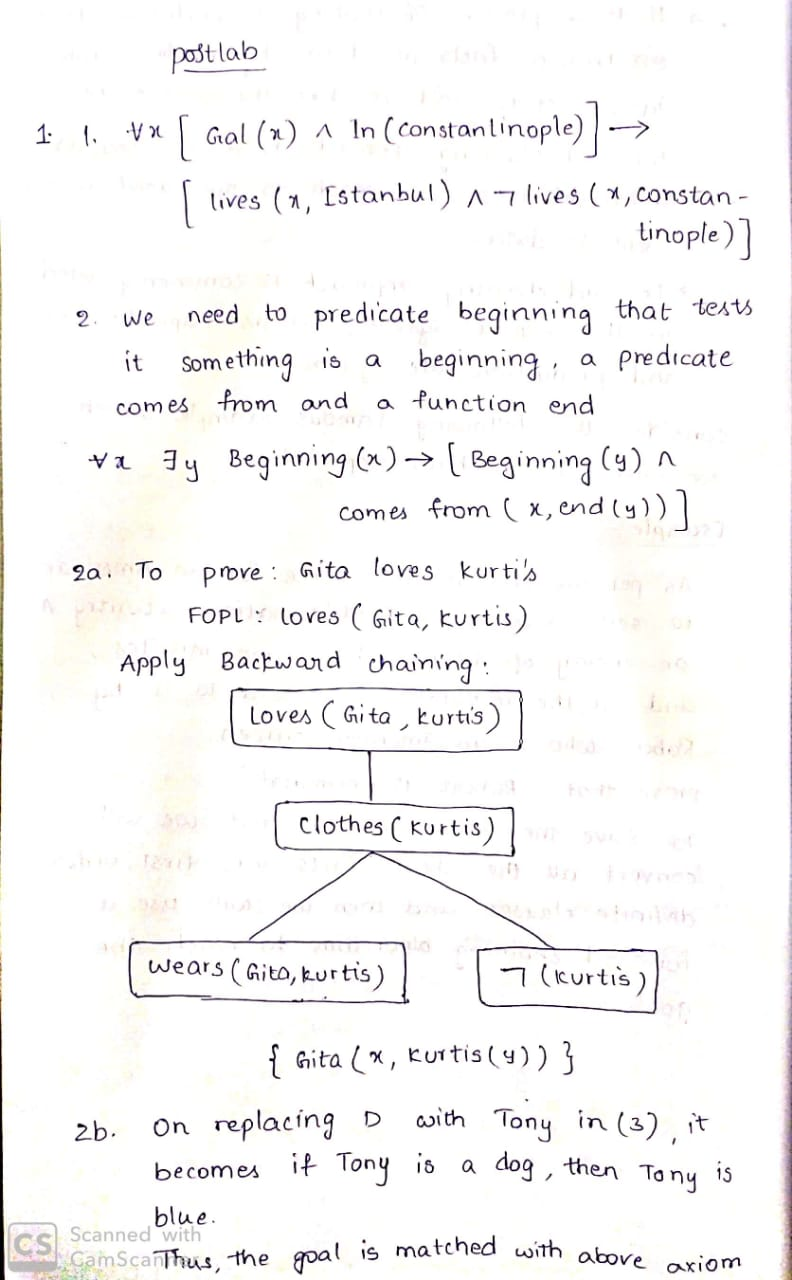 postlab
1. 1. ∀x [ Gal (x) ∧ In (constanlinople)] →
[ lives (x, Istanbul) ∧ ¬ lives (x, constan-
tinople)]
2. we need to predicate beginning that tests
it something is a beginning, a predicate
comes from and a function end
∀x ∃y Beginning (x) → [ Beginning (y) ∧
comes from (x, end (y))]
2a. To prove : Gita loves kurti's
FOPL : loves ( Gita, kurtis)
Apply Backward chaining :
Loves ( Gita , kurtis)
Clothes ( kurtis)
wears ( Gita, kurtis)
¬ (kurtis)
{ Gita (x, kurtis (y)) }
2b. On replacing D with Tony in (3), it
becomes if Tony is a dog, then Tony is
blue.
CS Scanned with
CamScanner
Thus, the goal is matched with above axiom